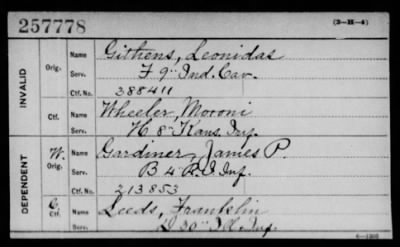 257778 (3-H-4)
INVALID Orig. Name Githens, Leonidas
Serv. F 9" Ind. Cav.
Ctf. No. 388411
Ctf. Name Wheeler, Moroni
Serv. H 8" Kans. Inf.
DEPENDENT W. Orig. Name Gardiner, James P.
Serv. B 4" R.I. Inf.
Ctf. No. 213853
C. Ctf. Name Leeds, Franklin
Serv. D 30" Ill. Inf.